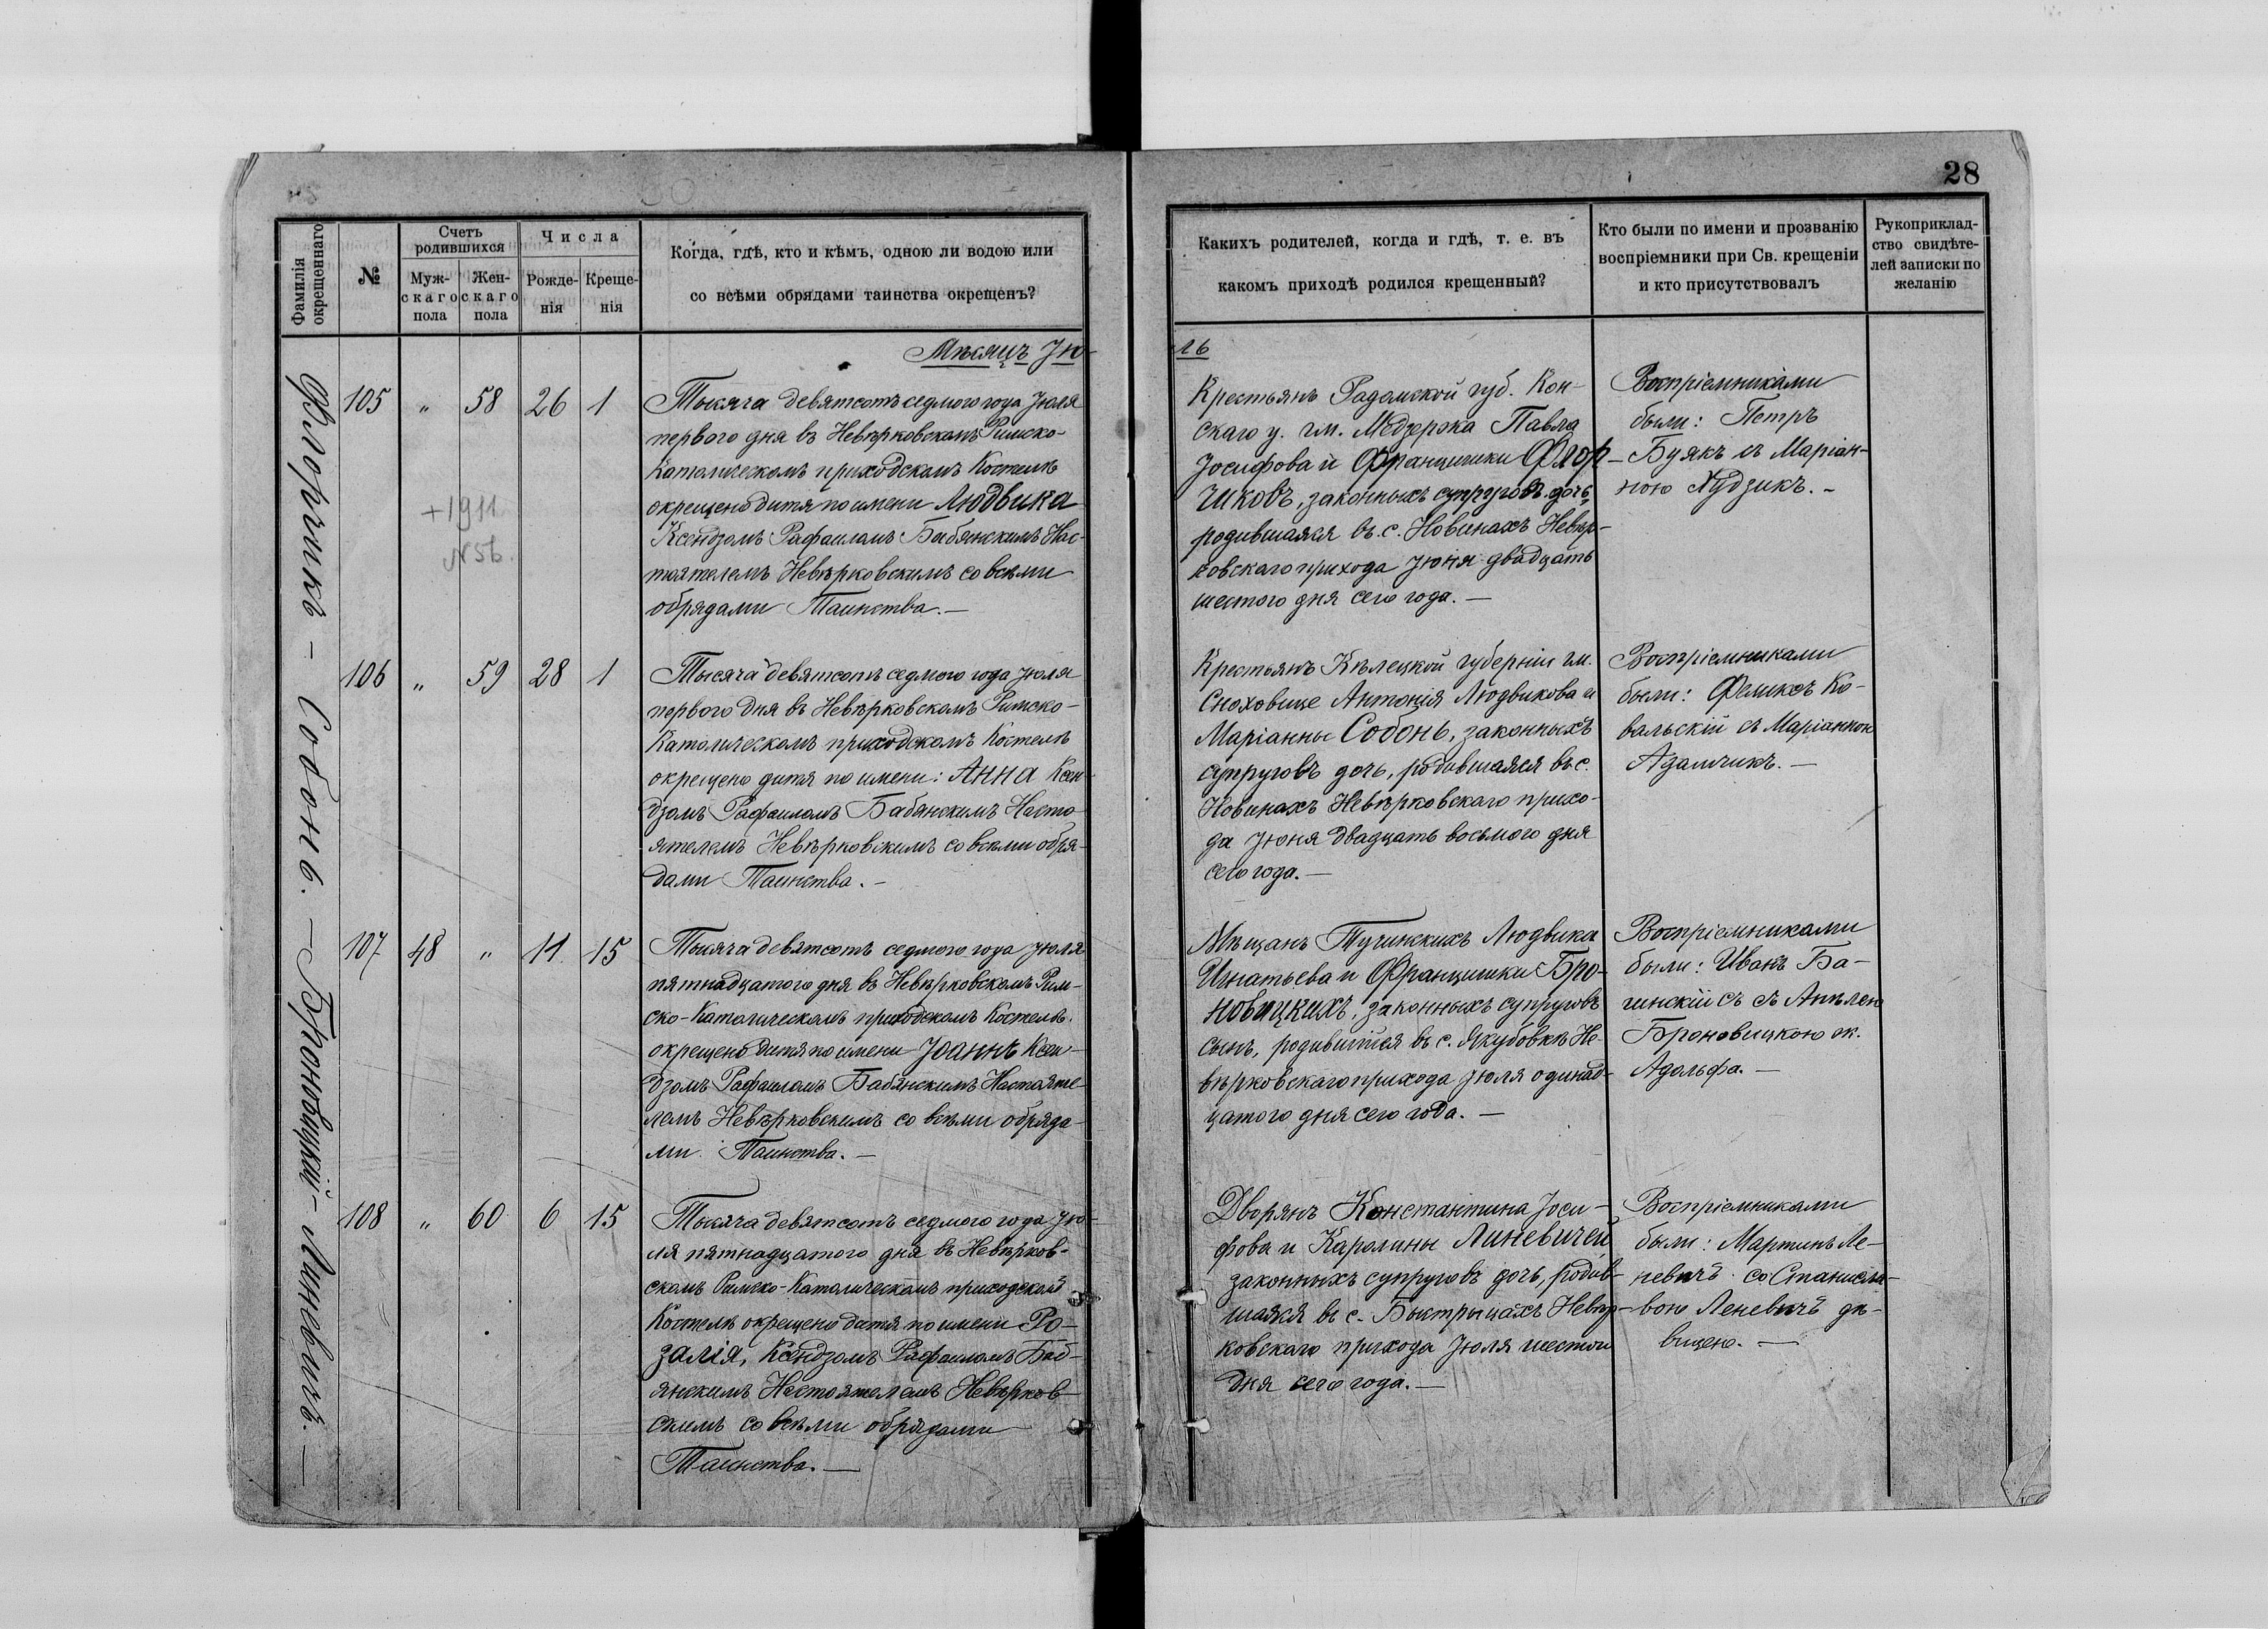 28
Фамилія
окрещеннаго
№
Счетъ
родившихся
Муж-
скаго
пола
Жен-
скаго
пола
Числа
Рожде-
нія
Креще-
нія
Когда, гдѣ, кто и кѣмъ, одною ли водою или
со всѣми обрядами таинства окрещенъ?
Какихъ родителей, когда и гдѣ, т. е. въ
какомъ приходѣ родился крещенный?
Кто были по имени и прозванію
воспріемники при Св. крещеніи
и кто присутствовалъ
Рукоприклад-
ство свидѣте-
лей записки по
желанію
Мѣсяцъ Ію-
ль
Флорчикъ - Собонь. - Броновицкій - Линевичъ. -
105 " 58 26 1
+1911
N56.
Тысяча девятсотъ седмого года Іюля
первого дня въ Невѣрковскомъ Римско-
Католическомъ приходскомъ Костелѣ
окрещено дитя по имени Людвика
Ксендзомъ Рафаиломъ Бабянскимъ Нас-
тоятелемъ Невѣрковскимъ со всѣми
обрядами Таинства. -
Крестьянъ Радомской губ. Кон-
скаго у. гм. Медзержа Павла
Іосифова и Францишки Флор-
чиковъ, законныхъ супруговъ дочь,
родившаяся въ с. Новинахъ Невѣр-
ковскаго прихода Іюня двадцать
шестого дня сего года. -
Воспріемниками
были: Петръ
Буякъ съ Маріан-
ною Дудзикъ. -
106 " 59 28 1
Тысяча девятсотъ седмого года Іюля
первого дня въ Невѣрковскомъ Римско-
Католическомъ приходскомъ Костелѣ
окрещено дитя по имени: Анна Ксен-
дзомъ Рафаиломъ Бабянскимъ Насто-
ятелемъ Невѣрковскимъ со всѣми обря-
дами Таинства. -
Крестьянъ Кѣлецкой губерніи гм.
Сноховице Антонія Людвикова и
Маріанны Собонь, законныхъ
супруговъ дочь, родившаяся въ с.
Новинахъ Невѣрковскаго прихо-
да Іюня двадцать восьмого дня
сего года. -
Воспріемниками
были: Феликсъ Ко-
вальскій съ Маріанною
Адамчикъ. -
107 48 " 11 15
Тысяча девятсотъ седмого года Іюля
пятнадцатого дня въ Невѣрковскомъ Рим-
ско-Католическомъ приходскомъ Костелѣ.
окрещено дитя по имени Іоаннъ Ксен-
дзомъ Рафаиломъ Бабянскимъ Настояте-
лемъ Невѣрковскимъ со всѣми обряда-
ми Таинства. -
Мѣщанъ Тучинскихъ Людвика
Игнатьева и Францишки Бро-
новицкихъ, законныхъ супруговъ
сынъ, родившійся въ с. Якубовкѣ Не-
вѣрковскаго прихода Іюля одинад-
цатого дня сего года. -
Воспріемниками
были: Иванъ Ба-
гинскій съ съ Анѣлею
Броновицкою ж.
Адольфа. -
108 " 60 6 15
Тысяча девятсотъ седмого года Ію-
ля пятнадцатого дня въ Невѣрков-
скомъ Римско-Католическомъ приходскомъ
Костелѣ окрещено дитя по имени Ро-
залія, Ксендзомъ Рафаиломъ Баб-
янскимъ Настоятелемъ Невѣрков-
скимъ со всѣми обрядами
Таинства. -
Дворянъ Константина Іоси-
фова и Каролины Линевичей
законныхъ супруговъ дочь, родив-
шаяся въ с. Быстрыцахъ Невѣр-
ковскаго прихода Іюля шестого
дня сего года. -
Воспріемниками
были: Мартинъ Ле-
невичъ со Станисла-
вою Леневичъ дѣ-
вицею. -